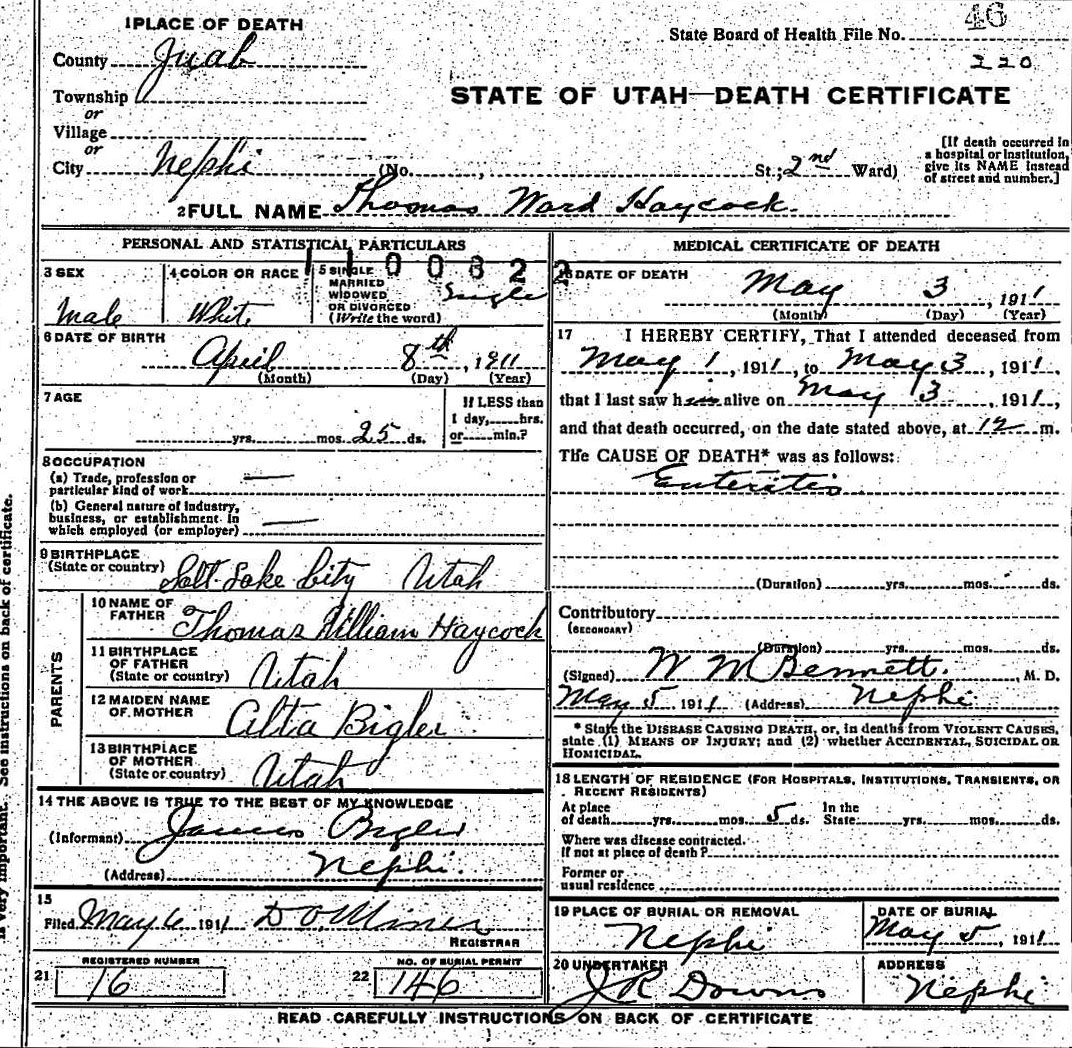 46
State Board of Health File No.
220
1 PLACE OF DEATH
County Juab
Township
or
Village
or
City Nephi (No. , St.; 2nd Ward)
STATE OF UTAH—DEATH CERTIFICATE
[If death occurred in
a hospital or institution,
give its NAME instead
of street and number.]
2 FULL NAME Thomas Ward Haycock.
PERSONAL AND STATISTICAL PARTICULARS
1100822
3 SEX
Male
4 COLOR OR RACE
White
5 SINGLE
MARRIED
WIDOWED
OR DIVORCED
(Write the word)
Single
6 DATE OF BIRTH
April 8th, 1911
(Month) (Day) (Year)
7 AGE
yrs. mos. 25 ds.
If LESS than
1 day, hrs.
or min.?
8 OCCUPATION
(a) Trade, profession or
particular kind of work —
(b) General nature of industry,
business, or establishment in
which employed (or employer) —
9 BIRTHPLACE
(State or country) Salt Lake City Utah
PARENTS
10 NAME OF
FATHER Thomas William Haycock
11 BIRTHPLACE
OF FATHER
(State or country) Utah
12 MAIDEN NAME
OF MOTHER Alta Bigler
13 BIRTHPLACE
OF MOTHER
(State or country) Utah
14 THE ABOVE IS TRUE TO THE BEST OF MY KNOWLEDGE
(Informant) James Bigler
(Address) Nephi.
15
Filed May 6 1911 D O Miner
REGISTRAR
REGISTERED NUMBER
21 16
NO. OF BURIAL PERMIT
22 146
MEDICAL CERTIFICATE OF DEATH
16 DATE OF DEATH
May 3, 1911
(Month) (Day) (Year)
17 I HEREBY CERTIFY, That I attended deceased from
May 1, 1911, to May 3, 1911,
that I last saw him alive on May 3, 1911,
and that death occurred, on the date stated above, at 12 m.
The CAUSE OF DEATH* was as follows:
Enteritis
(Duration) yrs. mos. ds.
Contributory
(SECONDARY)
(Duration) yrs. mos. ds.
(Signed) W M Bennett., M. D.
May 5 1911 (Address) Nephi
* State the DISEASE CAUSING DEATH, or, in deaths from VIOLENT CAUSES,
state (1) MEANS OF INJURY; and (2) whether ACCIDENTAL, SUICIDAL OR
HOMICIDAL.
18 LENGTH OF RESIDENCE (FOR HOSPITALS, INSTITUTIONS, TRANSIENTS, OR
RECENT RESIDENTS)
At place
of death yrs. mos. 5 ds.
In the
State yrs. mos. ds.
Where was disease contracted.
If not at place of death?
Former or
usual residence
19 PLACE OF BURIAL OR REMOVAL
Nephi
DATE OF BURIAL
May 5, 1911
20 UNDERTAKER
J R Downs
ADDRESS
Nephi
READ CAREFULLY INSTRUCTIONS ON BACK OF CERTIFICATE
is very important. See instructions on back of certificate.